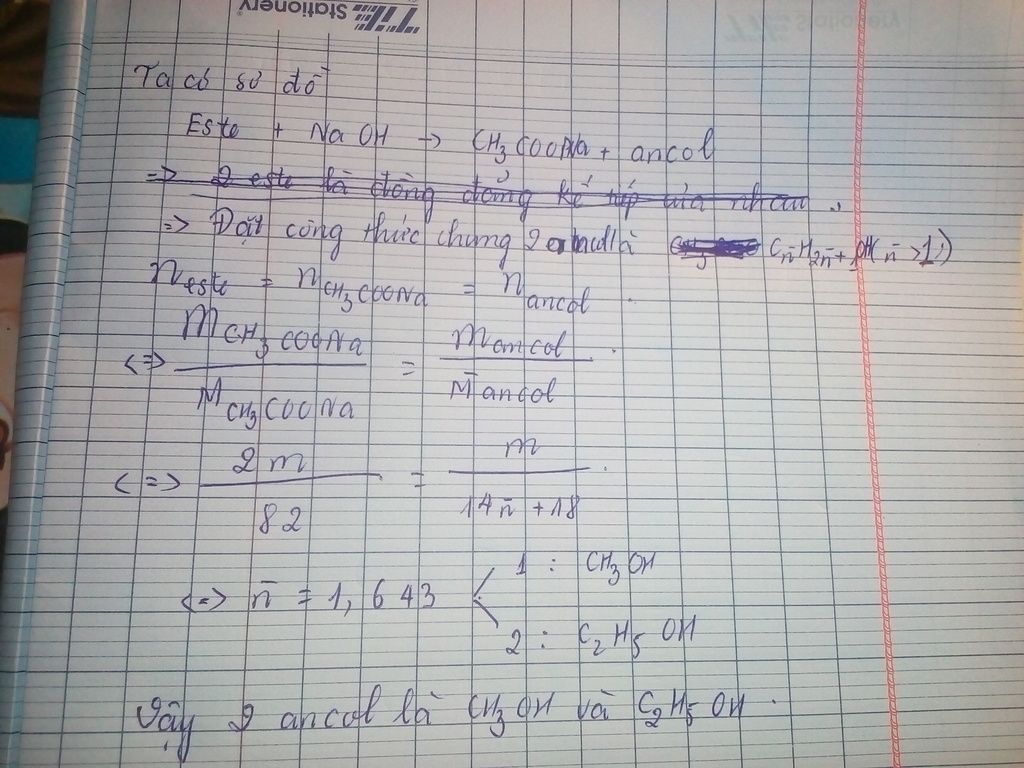 Stationery
TTL
Ta có sơ đồ
Este + NaOH → CH₃COONa + ancol
=> 2 este là đồng đẳng kế tiếp của nhau
=> Đặt công thức chung 2 ancol là Cn̄H2n̄+1OH (n̄ > 1)
neste = nCH₃COONa = nancol.
<=> mCH₃COONa / MCH₃COONa = mancol / M̄ancol.
<=> 2m / 82 = m / 14n̄ + 18.
<=> n̄ = 1,643 < 1 : CH₃OH
2 : C₂H₅OH
Vậy 2 ancol là CH₃OH và C₂H₅OH.